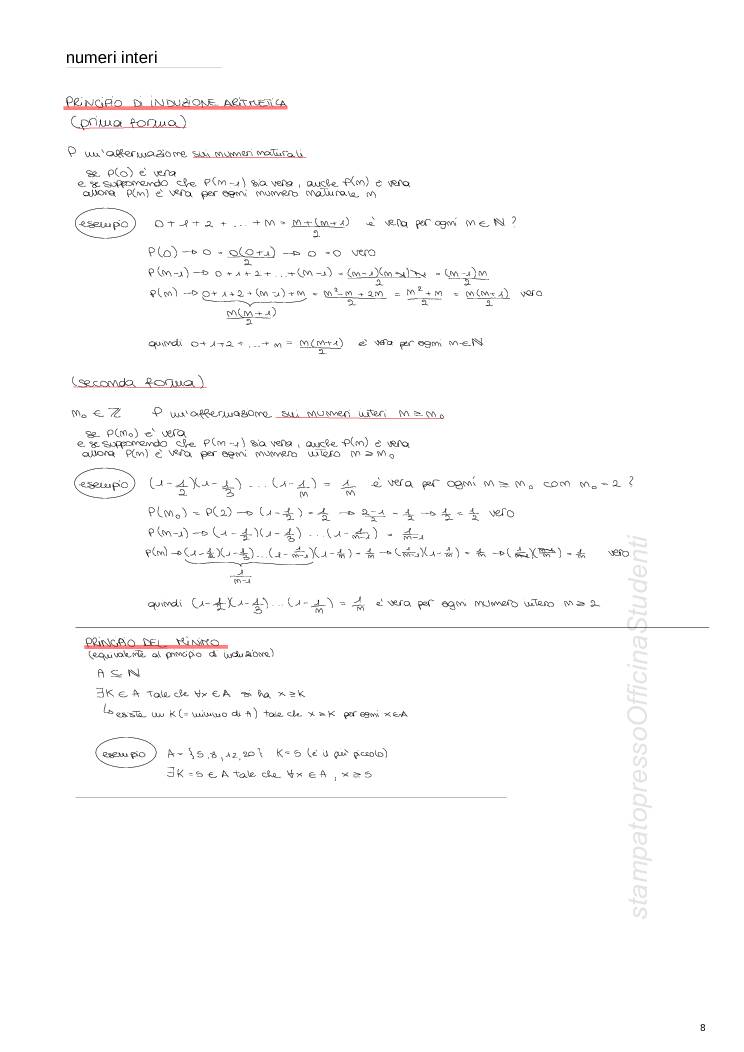 numeri interi
PRINCIPIO DI INDUZIONE ARITMETICA
(prima forma)
P un'affermazione sui numeri naturali
se P(0) è vera
e se supponendo che P(n-1) sia vera, anche P(n) è vera
allora P(n) è vera per ogni numero naturale n
esempio 0+1+2+...+n = n+(n+1)/2 è vera per ogni n∈ℕ?
P(0) → 0 = 0(0+1)/2 → 0=0 vero
P(n-1) → 0+1+2+...+(n-1) = (n-1)(n-1)+1/2 = (n-1)n/2
P(n) → 0+1+2+(n-1)+n = n²-n+2n/2 = n²+n/2 = n(n+1)/2 vero
n(n+1)/2
quindi 0+1+2+...+n = n(n+1)/2 è vera per ogni n∈ℕ
(seconda forma)
n₀∈ℤ P un'affermazione sui numeri interi n≥n₀
se P(n₀) è vera
e se supponendo che P(n-1) sia vera, anche P(n) è vera
allora P(n) è vera per ogni numero intero n≥n₀
esempio (1-1/2)(1-1/3)...(1-1/n) = 1/n è vera per ogni n≥n₀ con n₀=2?
P(n₀)=P(2) → (1-1/2)=1/2 → 2-1/2=1/2 → 1/2=1/2 vero
P(n-1) → (1-1/2)(1-1/3)...(1-1/n-1) = 1/n-1
P(n) → (1-1/2)(1-1/3)...(1-1/n-1)(1-1/n) = 1/n → (1/n-1)(1-1/n) = 1/n → (1/n-1)(n-1/n) = 1/n vero
1/n-1
quindi (1-1/2)(1-1/3)...(1-1/n) = 1/n è vera per ogni numero intero n≥2
PRINCIPIO DEL MINIMO
(equivalente al principio di induzione)
A⊆ℕ
∃K∈A tale che ∀x∈A si ha x≥K
↳ esiste un K (=minimo di A) tale che x≥K per ogni x∈A
esempio A={5,8,12,20} K=5 (è il più piccolo)
∃K=5∈A tale che ∀x∈A, x≥5
stampatopressoOfficinaStudenti
8